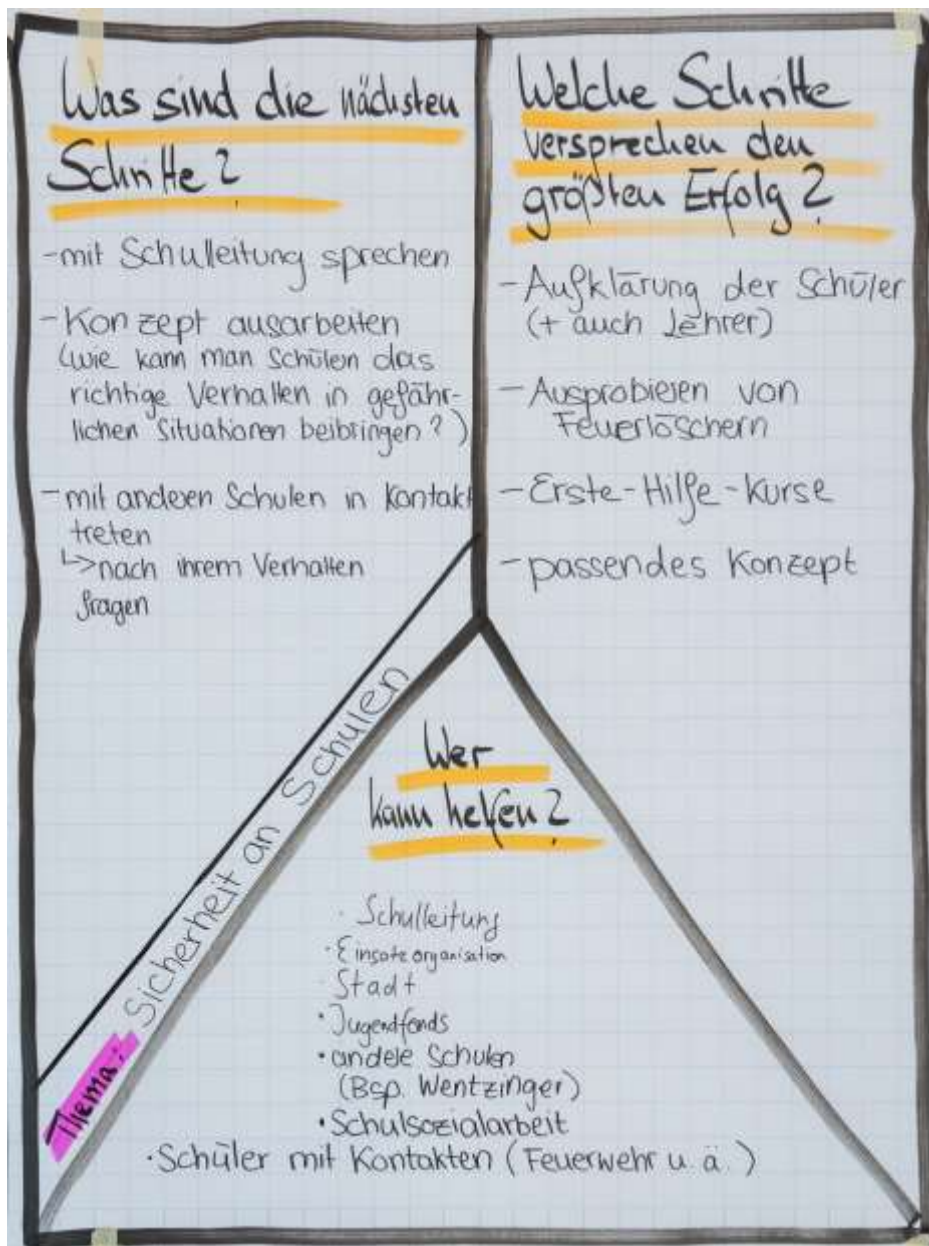 Was sind die nächsten
Schritte?
-mit Schulleitung sprechen
-Konzept ausarbeiten
(wie kann man Schülern das
richtige Verhalten in gefähr-
lichen Situationen beibringen?)
-mit anderen Schulen in Kontakt
treten
↳nach ihrem Verhalten
fragen
Welche Schritte
versprechen den
größten Erfolg?
-Aufklärung der Schüler
(+ auch Lehrer)
-Ausprobieren von
Feuerlöschern
-Erste-Hilfe-Kurse
-passendes Konzept
Thema: Sicherheit an Schulen
Wer
kann helfen?
·Schulleitung
·Einsatzorganisation
·Stadt
·Jugendfonds
·andere Schulen
(Bsp. Wentzinger)
·Schulsozialarbeit
·Schüler mit Kontakten (Feuerwehr u. ä.)